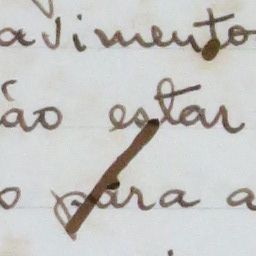 avimento
ão estar
o para a